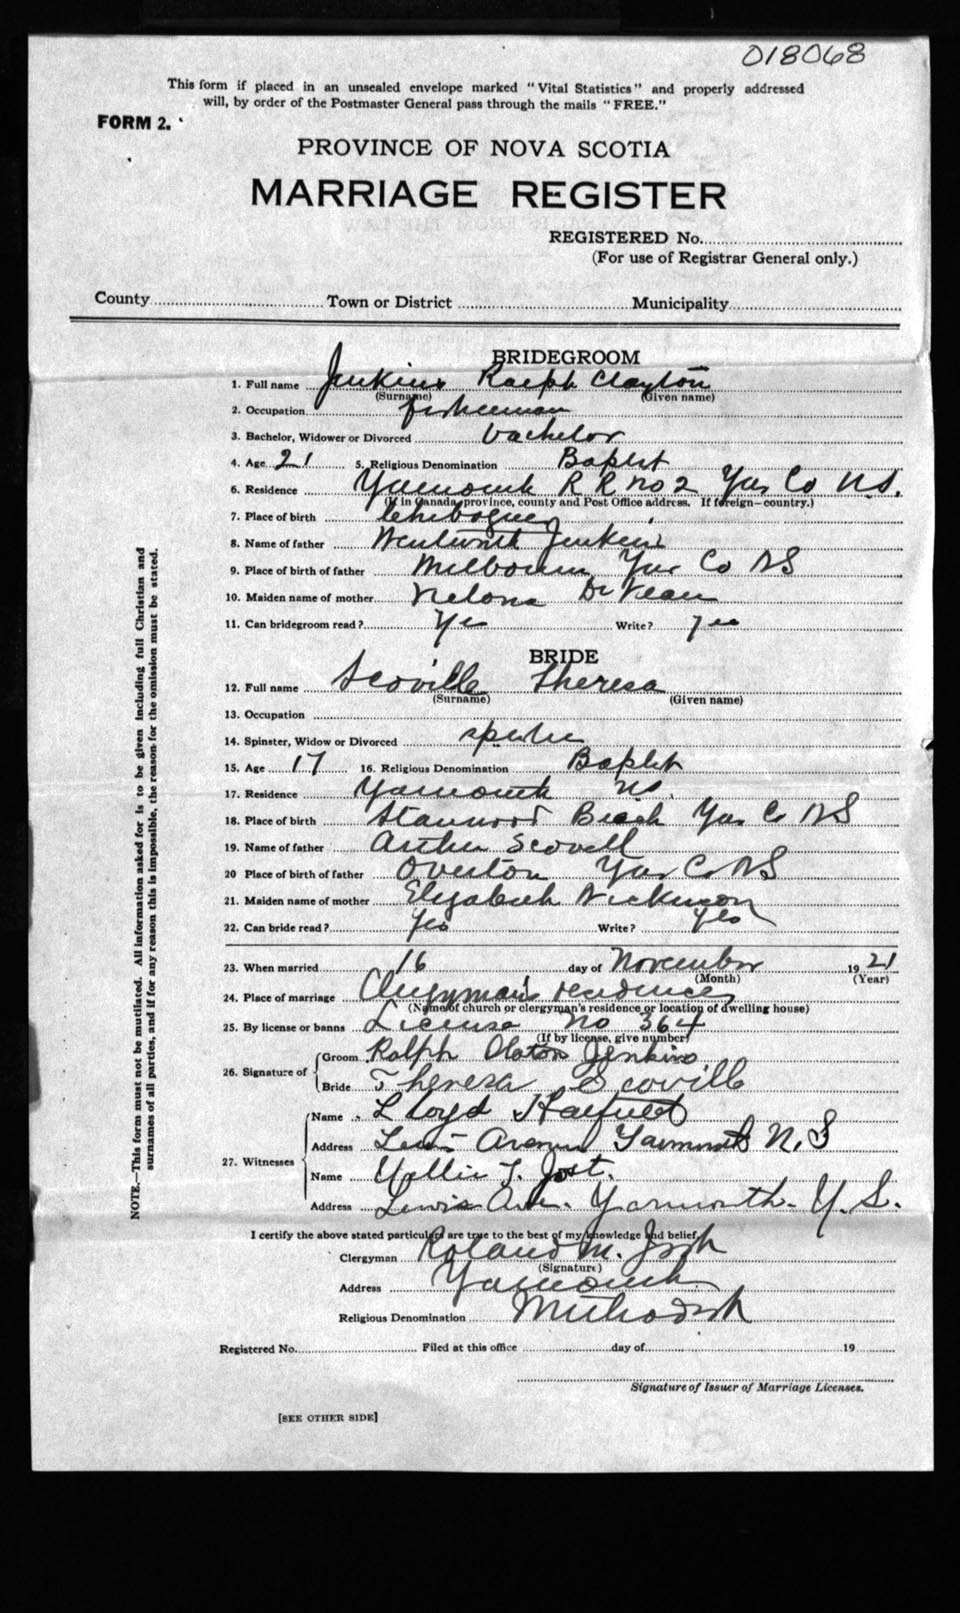 018068
This form if placed in an unsealed envelope marked "Vital Statistics" and properly addressed
will, by order of the Postmaster General pass through the mails "FREE."
FORM 2.
PROVINCE OF NOVA SCOTIA
MARRIAGE REGISTER
REGISTERED No.
(For use of Registrar General only.)
County Town or District Municipality
BRIDEGROOM
1. Full name Jenkins Ralph Clayton
(Surname) (Given name)
2. Occupation fisherman
3. Bachelor, Widower or Divorced bachelor
4. Age 21 5. Religious Denomination Baptist
6. Residence Yarmouth R R No 2 Yar Co N.S.
(If in Canada, province, county and Post Office address. If foreign—country.)
7. Place of birth Chebogue
8. Name of father Wentworth Jenkins
9. Place of birth of father Melbourne Yar Co NS
10. Maiden name of mother
11. Can bridegroom read? Yes Write? yes
BRIDE
12. Full name Scoville Theresa
(Surname) (Given name)
13. Occupation
14. Spinster, Widow or Divorced
15. Age 17 16. Religious Denomination Baptist
17. Residence Yarmouth NS.
18. Place of birth Beach Yar Co NS
19. Name of father Arthur Scovell
20 Place of birth of father Overton Yar Co NS
21. Maiden name of mother Elizabeth Nickerson
22. Can bride read? Yes Write? Yes
23. When married 16 day of November 1921
(Month) (Year)
24. Place of marriage Clergyman's residence
(Name of church or clergyman's residence or location of dwelling house)
25. By license or banns License No 364
(If by license, give number)
26. Signature of Groom Ralph Jenkins
Bride Theresa Scoville
27. Witnesses
Name Lloyd
Address Avenue Yarmouth N.S
Name T. Jost.
Address Lewis Ave. Yarmouth. S.
I certify the above stated particulars are true to the best of my knowledge and belief.
Clergyman Roland M. Josh
(Signature)
Address Yarmouth
Religious Denomination Methodist
Registered No. Filed at this office day of 19
Signature of Issuer of Marriage Licenses.
[SEE OTHER SIDE]
NOTE.—This form must not be mutilated. All information asked for is to be given including full Christian and
surnames of all parties, and if for any reason this is impossible, the reason for the omission must be stated.